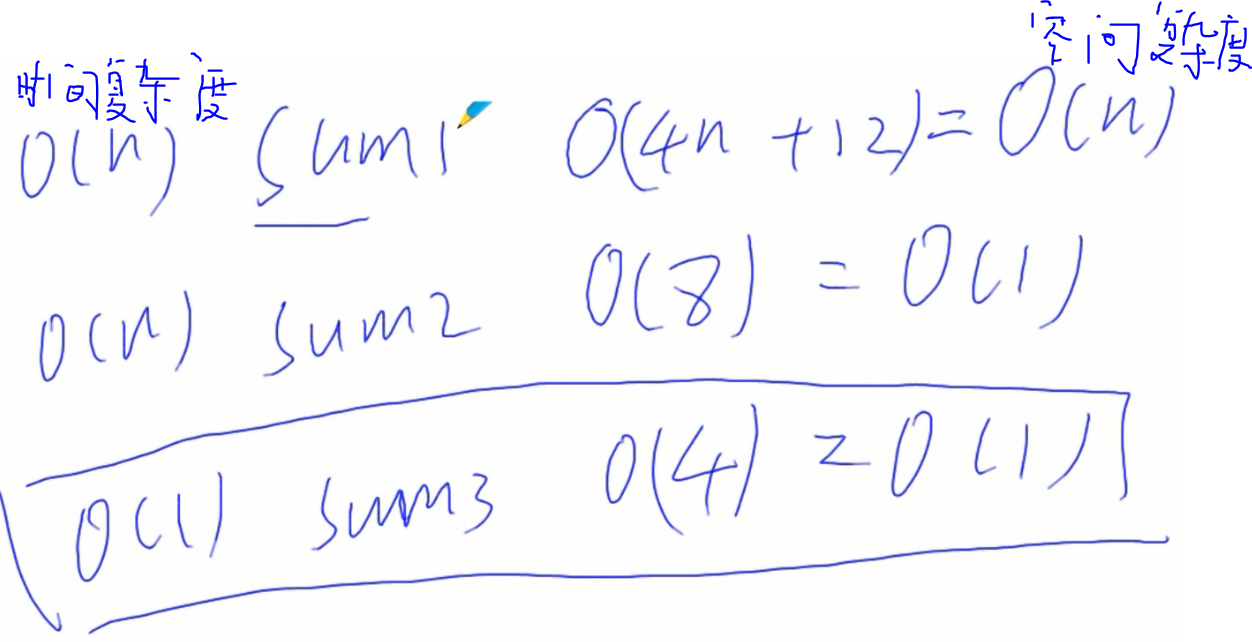 时间复杂度 空间复杂度
O(n) sum1 O(4n+12)=O(n)
O(n) sum2 O(8)=O(1)
O(1) sum3 O(4)=O(1)